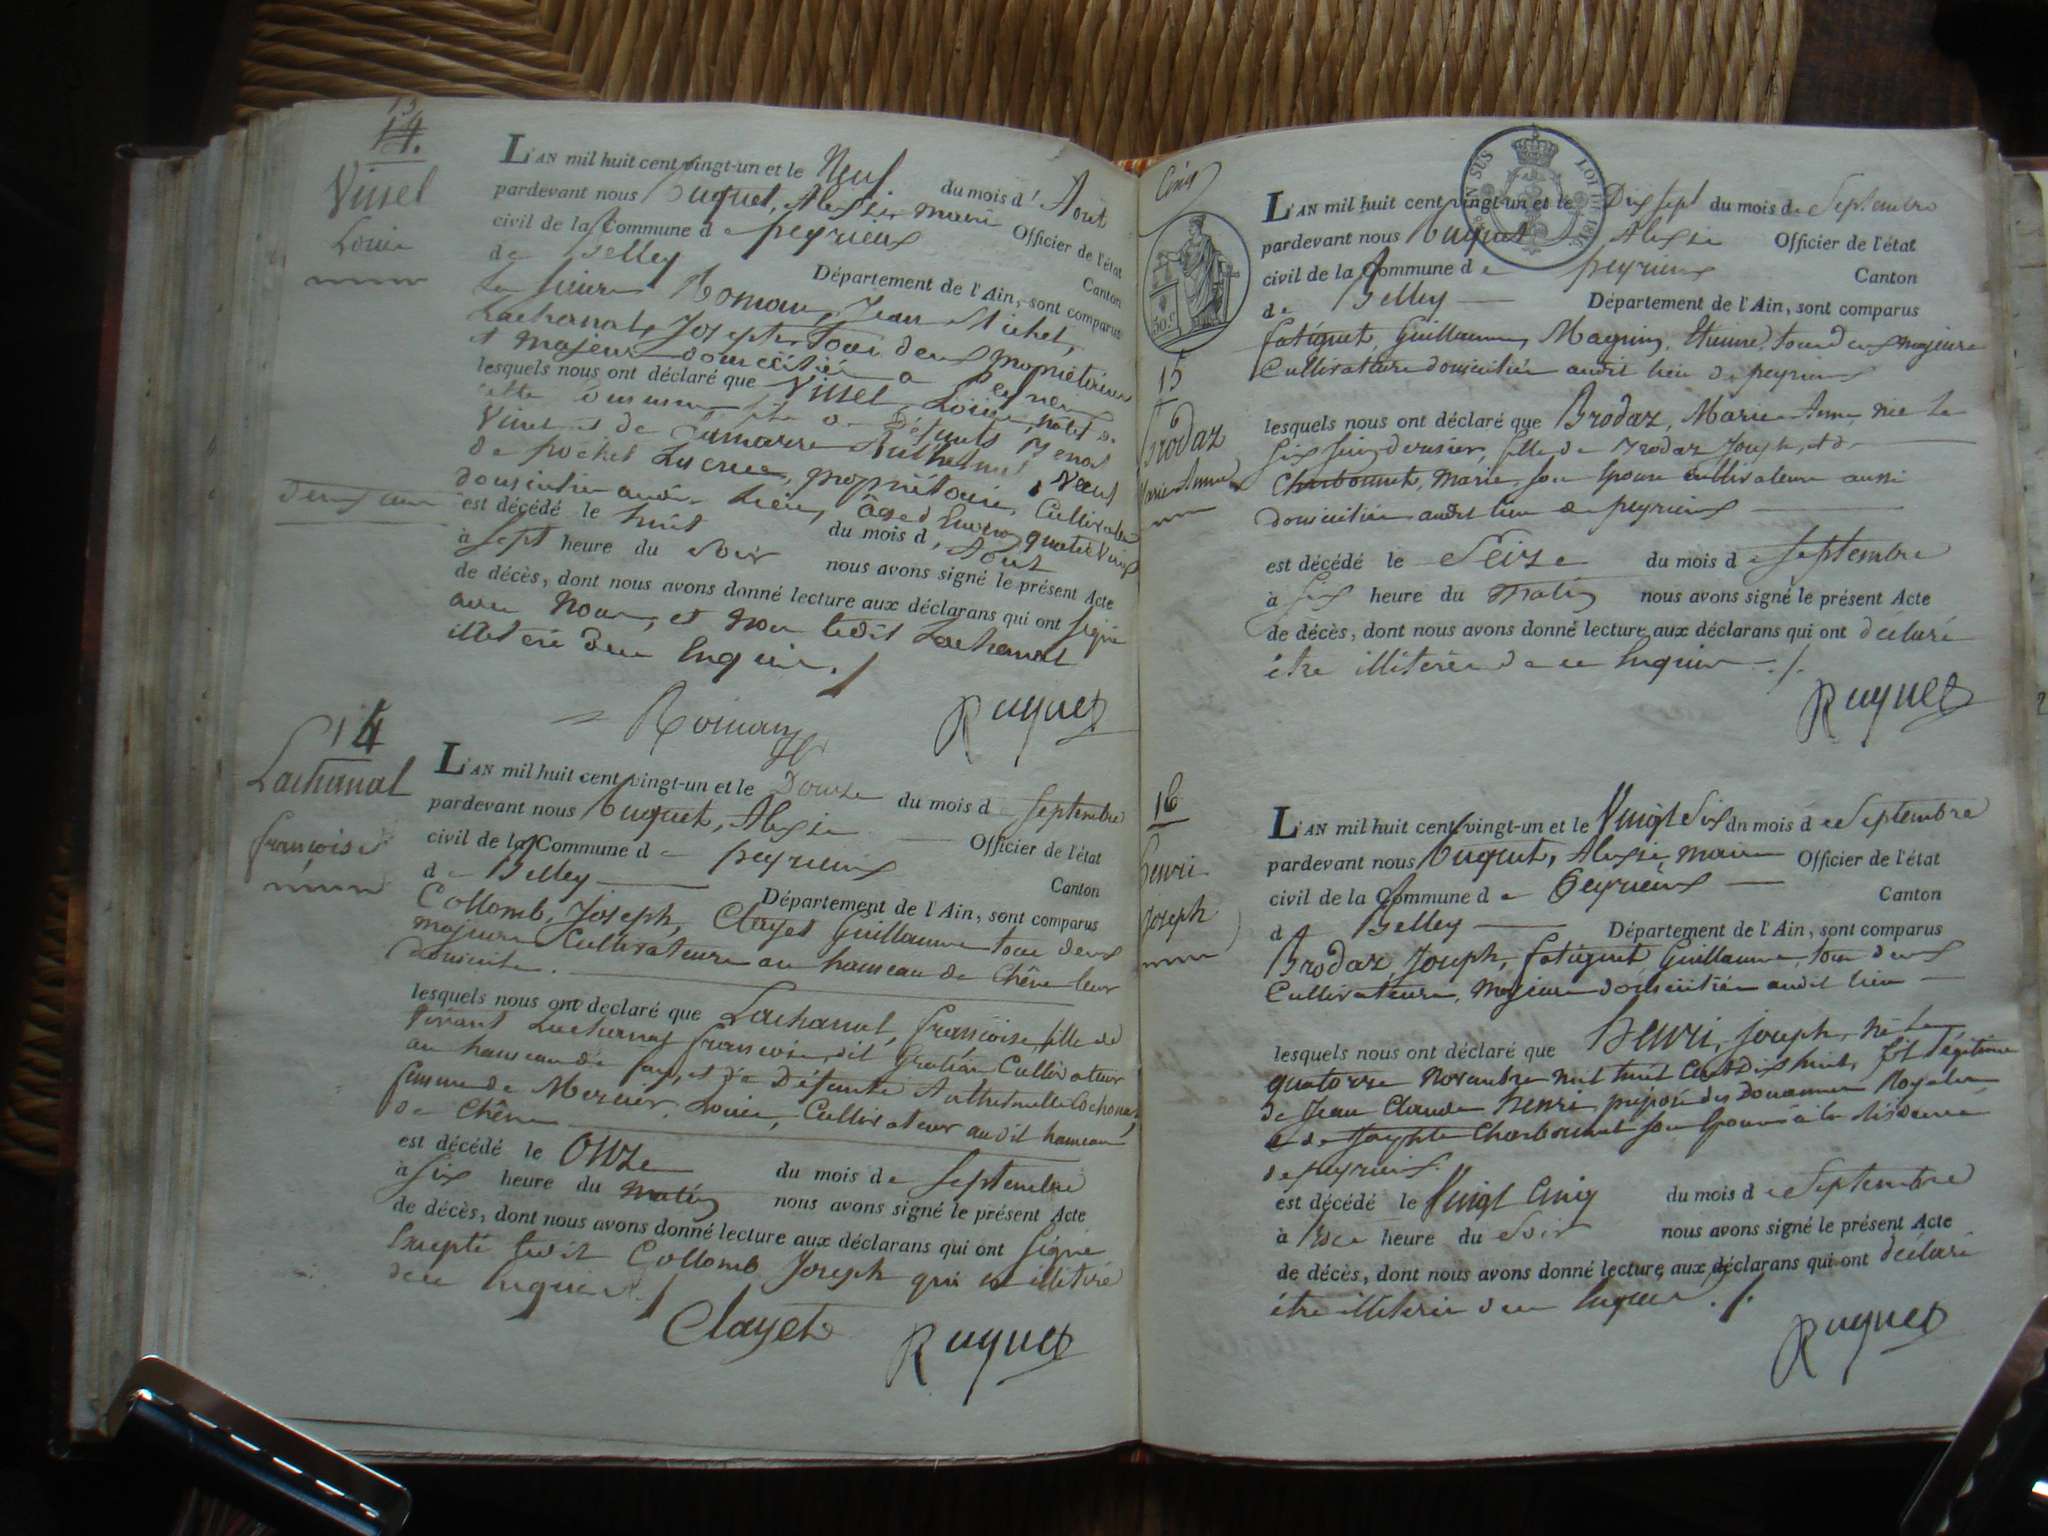 13
14.
Vissel
Louis
L'AN mil huit cent vingt-un et le Neuf du mois d'Aout
pardevant nous Ruquet, Alexis maire Officier de l'état
civil de la Commune de peyrieux Canton
de Belley Département de l'Ain, sont comparus
Roman, Jean Michel,
Lachanal, Joseph Tous deux propriétaires
et majeurs domiciliés a
lesquels nous ont déclaré que Vissel, Louis,
cette commune, fils de Défunts
Vissel et de
de pochet propriétaire, Cultivateur
domicilié audit lieu, âgé d'environ quatre Vingt
est décédé le huit du mois d'Aout
à sept heure du Soir nous avons signé le présent Acte
de décès, dont nous avons donné lecture aux déclarans qui ont signé
avec Nous, et non ledit Lachanal
illiteré de ce Enquis.
Roman
Ruquet
14
Lachanal
françoise
L'AN mil huit cent vingt-un et le Douze du mois de Septembre
pardevant nous Ruquet, Alexis Officier de l'état
civil de la Commune de peyrieux Canton
de Belley Département de l'Ain, sont comparus
Collomb, Joseph, Clayet Guillaume tous deux
majeurs Cultivateurs au hameau de Chêne leur
domicile.
lesquels nous ont déclaré que Lachanal, françoise, fille de
vivant Lachanal françois, dit Cultivateur
au hameau de et de Défunte
femme de Mercier, Louis, Cultivateur audit hameau
de Chêne
est décédé le Onze du mois de Septembre
à Six heure du matin nous avons signé le présent Acte
de décès, dont nous avons donné lecture aux déclarans qui ont signé
Excepté ledit Collomb Joseph qui est illitéré
de ce enquis.
Clayet
Ruquet
Cinq
TIMBRE
50 c.
LOI DE 1816
15
Brodaz
Marie Anne
L'AN mil huit cent vingt-un et le Dix sept du mois de Septembre
pardevant nous Ruquet Alexis Officier de l'état
civil de la Commune de peyrieux Canton
de Belley Département de l'Ain, sont comparus
fatiguet, Guillaume, Magnin, Etienne, tous deux majeurs
Cultivateurs domiciliés audit lieu de peyrieux
lesquels nous ont déclaré que Brodaz, Marie Anne, née le
six juin dernier, fille de Brodaz Joseph, et de
Charbonnet, Marie, son épouse cultivateurs aussi
domiciliés audit lieu de peyrieux
est décédé le Seize du mois de Septembre
à Six heure du matin nous avons signé le présent Acte
de décès, dont nous avons donné lecture aux déclarans qui ont déclaré
être illiterés de ce Enquis.
Ruquet
16
henri
Joseph
L'AN mil huit cent vingt-un et le Vingt Six du mois de Septembre
pardevant nous Ruquet, Alexis, maire Officier de l'état
civil de la Commune de Peyrieux Canton
d Belley Département de l'Ain, sont comparus
Brodaz, Joseph, fatiguet Guillaume, tous deux
Cultivateurs, majeurs domiciliés audit lieu
lesquels nous ont déclaré que Henri, Joseph, né le
quatorze novembre mil huit Cent Dix huit, fils légitime
de Jean Claude henri préposé des Douanes Royales
et de Charbonnet son Epouse à la résidence
de peyrieux.
est décédé le Vingt Cinq du mois de Septembre
à heure du Soir nous avons signé le présent Acte
de décès, dont nous avons donné lecture aux déclarans qui ont déclaré
être illiterés de ce Enquis.
Ruquet